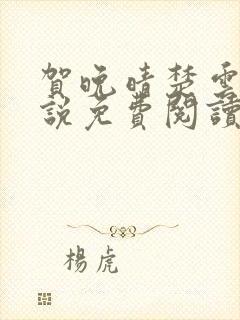 賀晚晴楚雲
說免費閱讀
楊虎